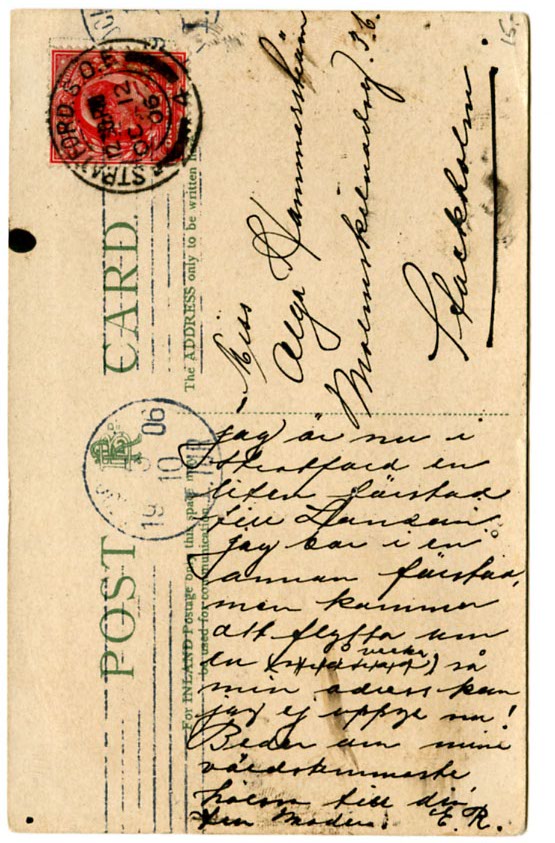 POST CARD
For INLAND Postage only this space may be used for communication
The ADDRESS only to be written here
STRATFORD S.O. E
OC 12
06
19 10 06
15.
Miss
Olga Hammarskjöld
Malmskilnadsg. 36.
Stockholm.
jag är nu i
Stratford en
liten förstad
till London.
Jag bor i en
annan förstad,
men kommer
att flytta om
en vecka, så
min adress kan
jag ej uppge nu!
Beder om mina
värdsammaste
hälsn till din
Modern. E. R.